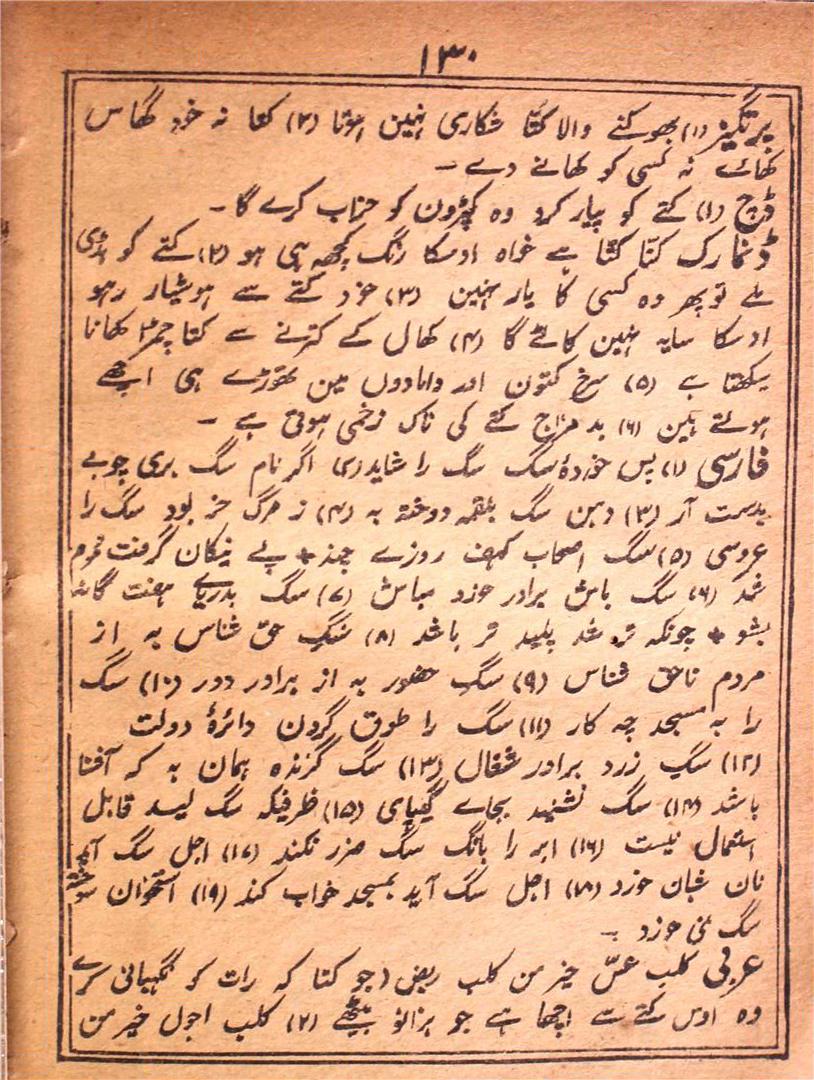 ۱۳۰
پرتگیز (۱) بھوکنے والا کتّا شکاری نہین ہوتا (۲) کتا نہ خود گھاس
کھائے نہ کسی کو کھانے دے ۔
ڈچ (۱) کتے کو پیار کرو وہ کپڑون کو خراب کرے گا ۔
ڈنمارک کتّا کتّا ہے خواہ اوسکا رنگ کچھ ہی ہو (۲) کتے کو ہڈی
ملے تو پھر وہ کسی کا یار نہین (۳) خود کتے سے ہوشیار رہو
اوسکا سایہ نہین کاٹے گا (۴) کھال کے کترنے سے کتا چمڑا کھانا
سیکھتا ہے (۵) سرخ کتون اور دامادون مین تھوڑے ہی اچھے
ہوتے ہین (۶) بد مزاج کتے کی ناک زخمی ہوتی ہے ۔
فارسی (۱) پس خوردۂ سگ سگ را شاید (۲) اگر نام سگ بری چوبے
بدست آر (۳) دہن سگ بلقمہ دوختہ بہ (۴) ز مرگ خر بود سگ را
عروسی (۵) سگ اصحاب کہف روزے چند * پے نیکان گرفت مردم
شد (۶) سگ باش برادر خورد مباش (۷) سگ بدریاے ہفت گانہ
بشو * چونکہ تر شد پلید تر باشد (۸) سگِ حق شناس بہ از
مردم ناحق شناس (۹) سگِ حضور بہ از برادر دور (۱۰) سگ
را بہ مسجد چہ کار (۱۱) سگ را طوق گردن دائرۂ دولت
(۱۲) سگِ زرد برادر شغال (۱۳) سگ گزندہ ہمان بہ کہ آشنا
باشد (۱۴) سگ نشنید بجاے گیپای (۱۵) ظرفیکہ سگ لیسد قابل
استعمال نیست (۱۶) ابر را بانگ سگ ضرر نکند (۱۷) اجل سگ آید
نان شبان خورد (۱۸) اجل سگ آید بمسجد خواب کند (۱۹) استخوان سوختہ
سگ نمی خورد ۔
عربی کلب عسّ خیر من کلب ربض (جو کتا کہ رات کو نگہبانی کرے
وہ اوس کتے سے اچھا ہے جو برانو بیٹھے (۲) کلب اجول خیر من